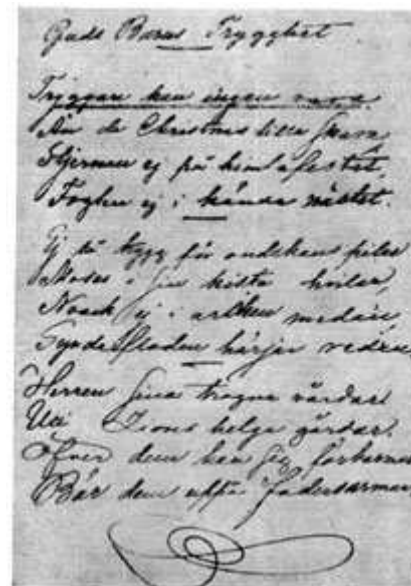 Guds Barns Trygghet.
Tryggare kan ingen vara.
Än de Christnas lilla skara,
Stjernan ej på himlafästet,
Foglen ej i kända nästet.
Ej så trygg för ondskans pilar
Moses i sin kista hvilar,
Noach ej i arken medan
Syndafloden härjar
Herren sina trogna vårdar
Uti Zions helga gårdar.
Öfver dem han sig förbarmar
Bär dem uppå Fadersarmar